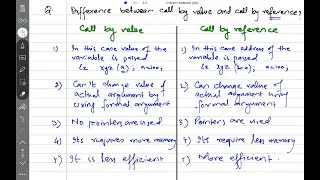 Q. Difference between call by value and call by reference:
Call by value
1) In this case value of the
variable is passed
Ex xyz (a); a=100;
2) Can't change value of
actual argument by
using formal argument
3) No pointers are used
4) Its requires more memory
5) It is less efficient
Call by reference
1) In this case address of the
variable is passed
Ex xyz (&a); a=100;
2) Can change value of
actual argument using
formal argument
3) Pointers are used
4) Its require less memory
5) More efficient.